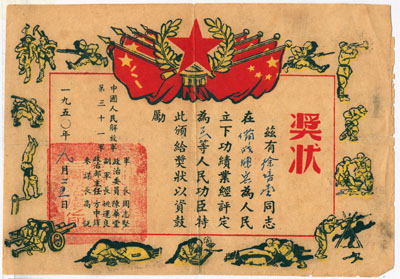 獎狀
茲有徐同志
在為人民
立下功績業經評定
為等人民功臣特
此頒給獎狀以資鼓
勵
中國人民解放軍
第三十一軍
軍長周志堅
政治委員陳華堂
副軍長姚運良
政治部主任方中鐸
參謀長高銳
一九五〇年八月日